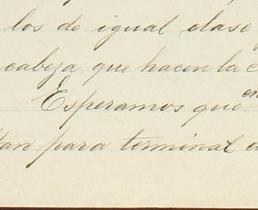 los de igual clase
cabeza, que hacen la c
en
Esperamos que
tan para terminal